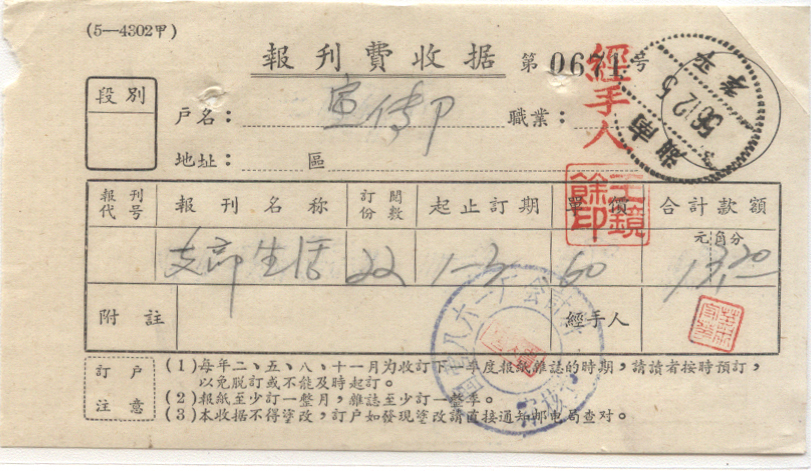 (5—4302甲)
報刊費收据 第0671号
段別
戶名：宣传部 職業：
地址： 區
經手人
王鏡餘印
湖南
56.12.5
報刊代号 報刊名称 訂閱份数 起止訂期 單價 合計款額
元角分
支部生活 22 1-3 60 13.20
附註 經手人
訂戶注意
(1)每年二、五、八、十一月为收訂下一季度报紙雜誌的时期，請讀者按時預訂，
以免脫訂或不能及時起訂。
(2)报紙至少訂一整月，雜誌至少訂一整季。
(3)本收据不得塗改，訂戶如發現塗改請直接通知邮电局查对。